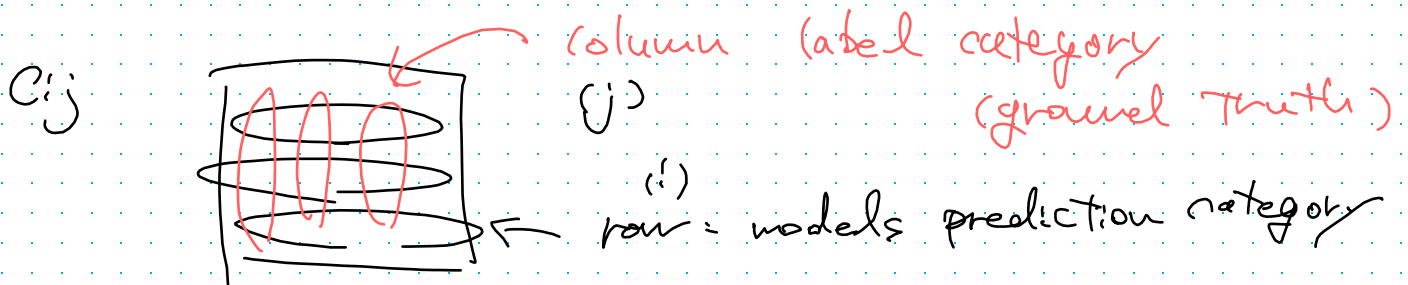 column label category
Cij (j) (ground Truth)
(i)
row = models prediction category